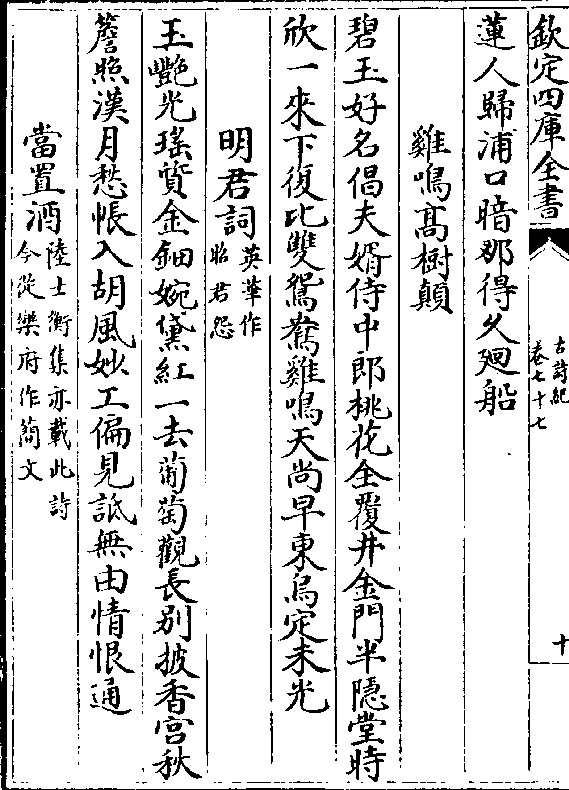 欽定四庫全書
古詩紀
卷七十七
十
蓮人歸浦口暗那得久廻船
雞鳴高樹顛
碧玉好名倡夫婿侍中郎桃花全覆井金門半隱堂時
欣一來下復比雙鴛鴦雞鳴天尚早東烏定未光
明君詞
英華作
昭君怨
玉艷光瑤質金鈿婉黛紅一去蒲萄觀長別披香宮秋
簷照漢月愁帳入胡風妙工偏見詆無由情恨通
當置酒
陸士衡集亦載此詩
今從樂府作簡文